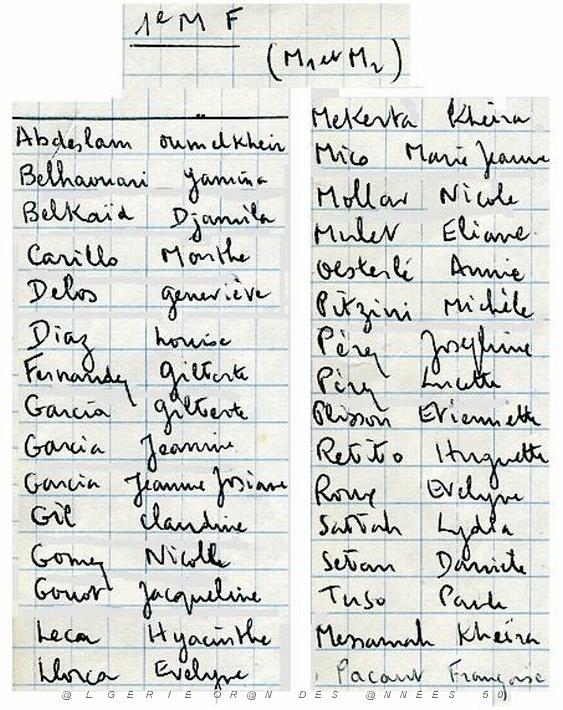 1e M F
(M1 et M2)
Abdeslam oumelkheir
Belhaouari yamina
Belkaïd Djamila
Carillo Marthe
Delos geneviève
Diaz Louise
Fernandez Gilberte
Garcia gilberte
Garcia Jeannine
Garcia Jeanne Josiane
Gil Claudine
Gomez Nicolle
Gouot Jacqueline
Leca Hyacinthe
Llorca Evelyne
Mekerta Kheira
Mico Marie Jeanne
Mollar Nicole
Mulet Eliane
Oesterlé Annie
Pitzini Michèle
Pérez Joséphine
Pérez Lucette
Plisson Etiennette
Retito Huguette
Roux Evelyne
Sattah Lydia
Setan Danièle
Tuso Paule
Messamah Kheïra
Pacaut Françoise
@LGERIE OR@N DES @NNÉES 50